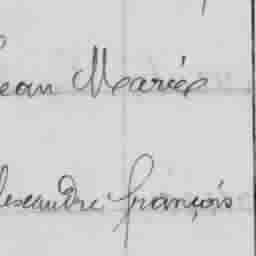 Jean Marie
Alexandre françois